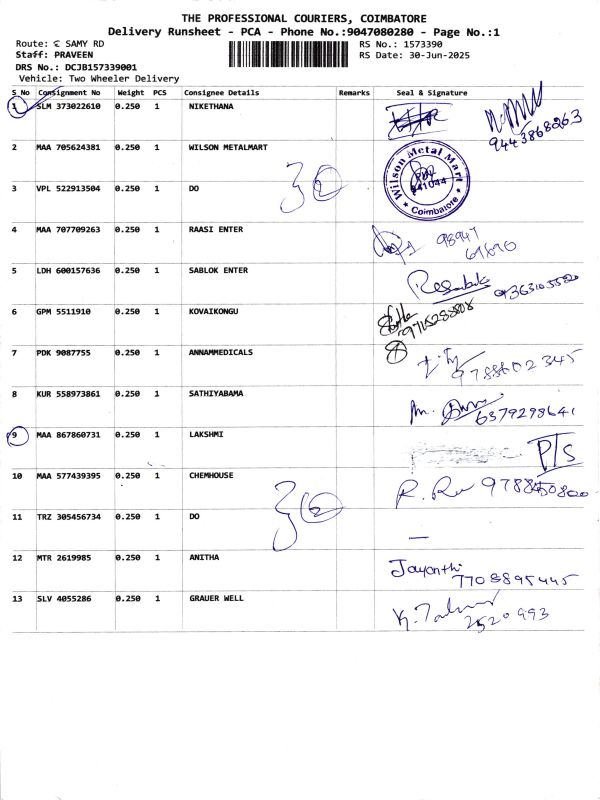 THE PROFESSIONAL COURIERS, COIMBATORE
Delivery Runsheet - PCA - Phone No.:9047080280 - Page No.:1
Route: C SAMY RD RS No.: 1573390
Staff: PRAVEEN RS Date: 30-Jun-2025
DRS No.: DCJB157339001
Vehicle: Two Wheeler Delivery
S_No Consignment No Weight PCS Consignee Details Remarks Seal & Signature
1 SLM 373022610 0.250 1 NIKETHANA
9443868263
2 MAA 705624381 0.250 1 WILSON METALMART
Wilson Metal Mart
641044
Coimbatore
3 VPL 522913504 0.250 1 DO
4 MAA 707709263 0.250 1 RAASI ENTER
98947
69690
5 LDH 600157636 0.250 1 SABLOK ENTER
6 GPM 5511910 0.250 1 KOVAIKONGU
9715288808
7 PDK 9087755 0.250 1 ANNAMMEDICALS
9788602345
8 KUR 558973861 0.250 1 SATHIYABAMA
6379298641
9 MAA 867860731 0.250 1 LAKSHMI
P/S
10 MAA 577439395 0.250 1 CHEMHOUSE
11 TRZ 305456734 0.250 1 DO
12 MTR 2619985 0.250 1 ANITHA
Jayanthi
7708895445
13 SLV 4055286 0.250 1 GRAUER WELL
2520993